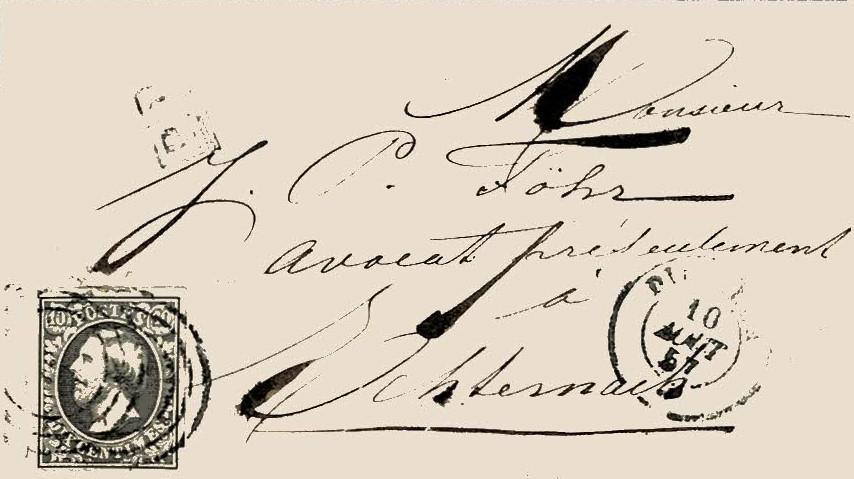 Monsieur
J. P. Föhr
avocat présentement
à
Echternach
10
AOUT
57
10 POSTES 10
DIX CENTIMES